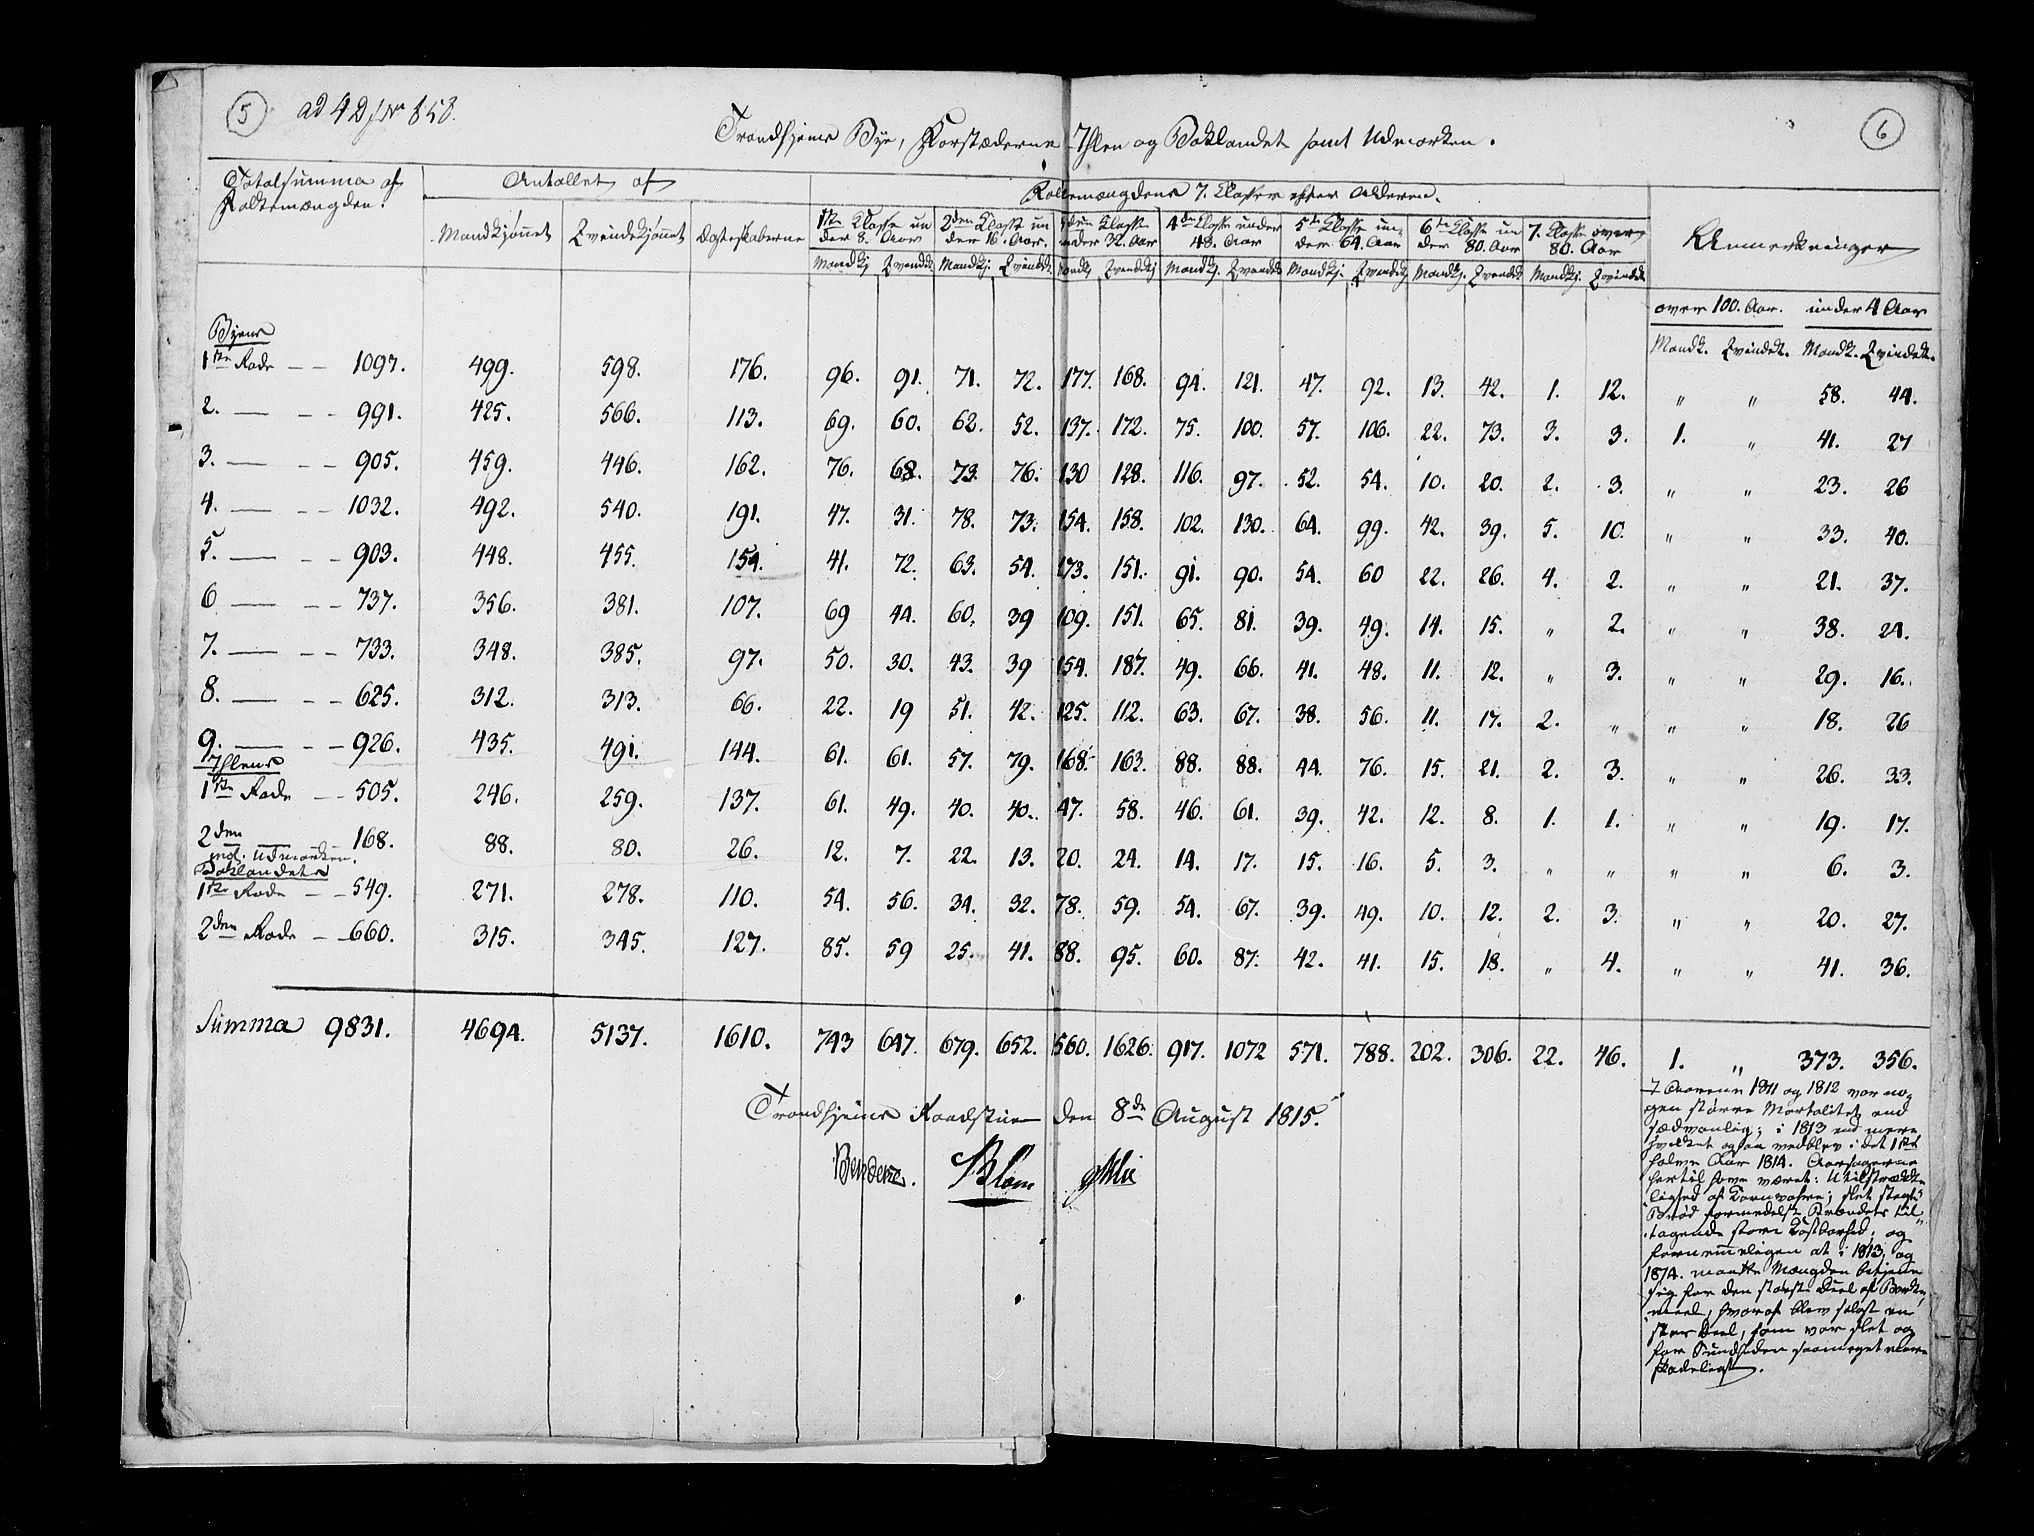 5 ad 4 D
6
Trondhjems Bye, Forstæderne Ihlen og Baklandet samt Udmarken.
Totalsumma af Folkemængden. Antallet af Folkemængdens 7. Classer efter Alderen. Anmerkninger
Mandkjønnet Qvindekjønnet Ægteskaberne 1ste Classe under 8. Aar 2den Classe under 16. Aar. 3die Classe under 32. Aar 4de Classe under 48. Aar 5te Classe under 64. Aar 6te Classe under 80. Aar 7. Classe over 80. Aar
Mandkj. Qvindek. Mandkj. Qvindek. Mandkj. Qvindekj. Mandkj. Qvindek. Mandkj. Qvindekj. Mandkj. Qvindek. Mandkj. Qvindek.
over 100. Aar. under 4 Aar
Mandk. Qvindek. Mandk. Qvindek.
Byens
1ste Rode — — 1097. 499. 598. 176. 96. 91. 71. 72. 177. 168. 94. 121. 47. 92. 13. 42. 1. 12. " " 58. 44.
2. — — — 991. 425. 566. 113. 69. 60. 62. 52. 137. 172. 75. 100. 57. 106. 22. 73. 3. 3. 1. " 41. 27
3. — — — 905. 459. 446. 162. 76. 68. 73. 76. 130 128. 116. 97. 52. 54. 10. 20. 2. 3. " " 23. 26
4. — — — 1032. 492. 540. 191. 47. 31. 78. 73. 154. 158. 102. 130. 64. 99. 42. 39. 5. 10. " " 33. 40.
5. — — — 903. 448. 455. 154. 41. 72. 63. 54. 173. 151. 91. 90. 54. 60 22. 26. 4. 2. " " 21. 37.
6 — — — 737. 356. 381. 107. 69 44. 60. 39 109. 151. 65. 81. 39. 49. 14. 15. " 2. " " 38. 24.
7. — — — 733. 348. 385. 97. 50. 30. 43. 39 154. 187. 49. 66. 41. 48. 11. 12. " 3. " " 29. 16.
8. — — — 625. 312. 313. 66. 22. 19 51. 42. 125. 112. 63. 67. 38. 56. 11. 17. 2. " " " 18. 26
9. — — — 926. 435. 491. 144. 61. 61. 57. 79. 168. 163. 88. 88. 44. 76. 15. 21. 2. 3. " " 26. 33.
Ihlens
1ste Rode — — 505. 246. 259. 137. 61. 49. 40. 40. 47. 58. 46. 61. 39. 42. 12. 8. 1. 1. " " 19. 17.
2den — — 168. 88. 80. 26. 12. 7. 22. 13. 20. 24. 14. 17. 15. 16. 5. 3. " " " " 6. 3.
incl. Udmarken.
Baklandets
1ste Rode — — 549. 271. 278. 110. 54. 56. 34. 32. 78. 59. 54. 67. 39. 49. 10. 12. 2. 3. " " 20. 27.
2den Rode — — 660. 315. 345. 127. 85. 59 25. 41. 88. 95. 60. 87. 42. 41. 15. 18. " 4. " " 41. 36.
Summa 9831. 4694. 5137. 1610. 743 647. 679. 652. 1560. 1626. 917. 1072 571. 788. 202. 306. 22. 46. 1. " 373. 356.
Trondhjems Raadstue den 8de August 1815.
Blom
I Aarene 1811 og 1812 var no-
gen større Mortalitet end
sædvanlig; i 1813 end mere
hvilket ogsaa vedblev i det 1ste
halve Aar 1814. Aarsagerne
hertil have været: Utilstrække-
lighed af Kornvahre; slet stegt
Brød formedelst Brændets til-
tagende store Kostbarhed; og
fornemmeligen at i 1813 og
1814. maatte Mængden betjene
sig for den største Deel af Bark-
meel, hvoraf blev solgt en
stor Deel, som var slet og
for Sundheden saameget mere
skadeligt.